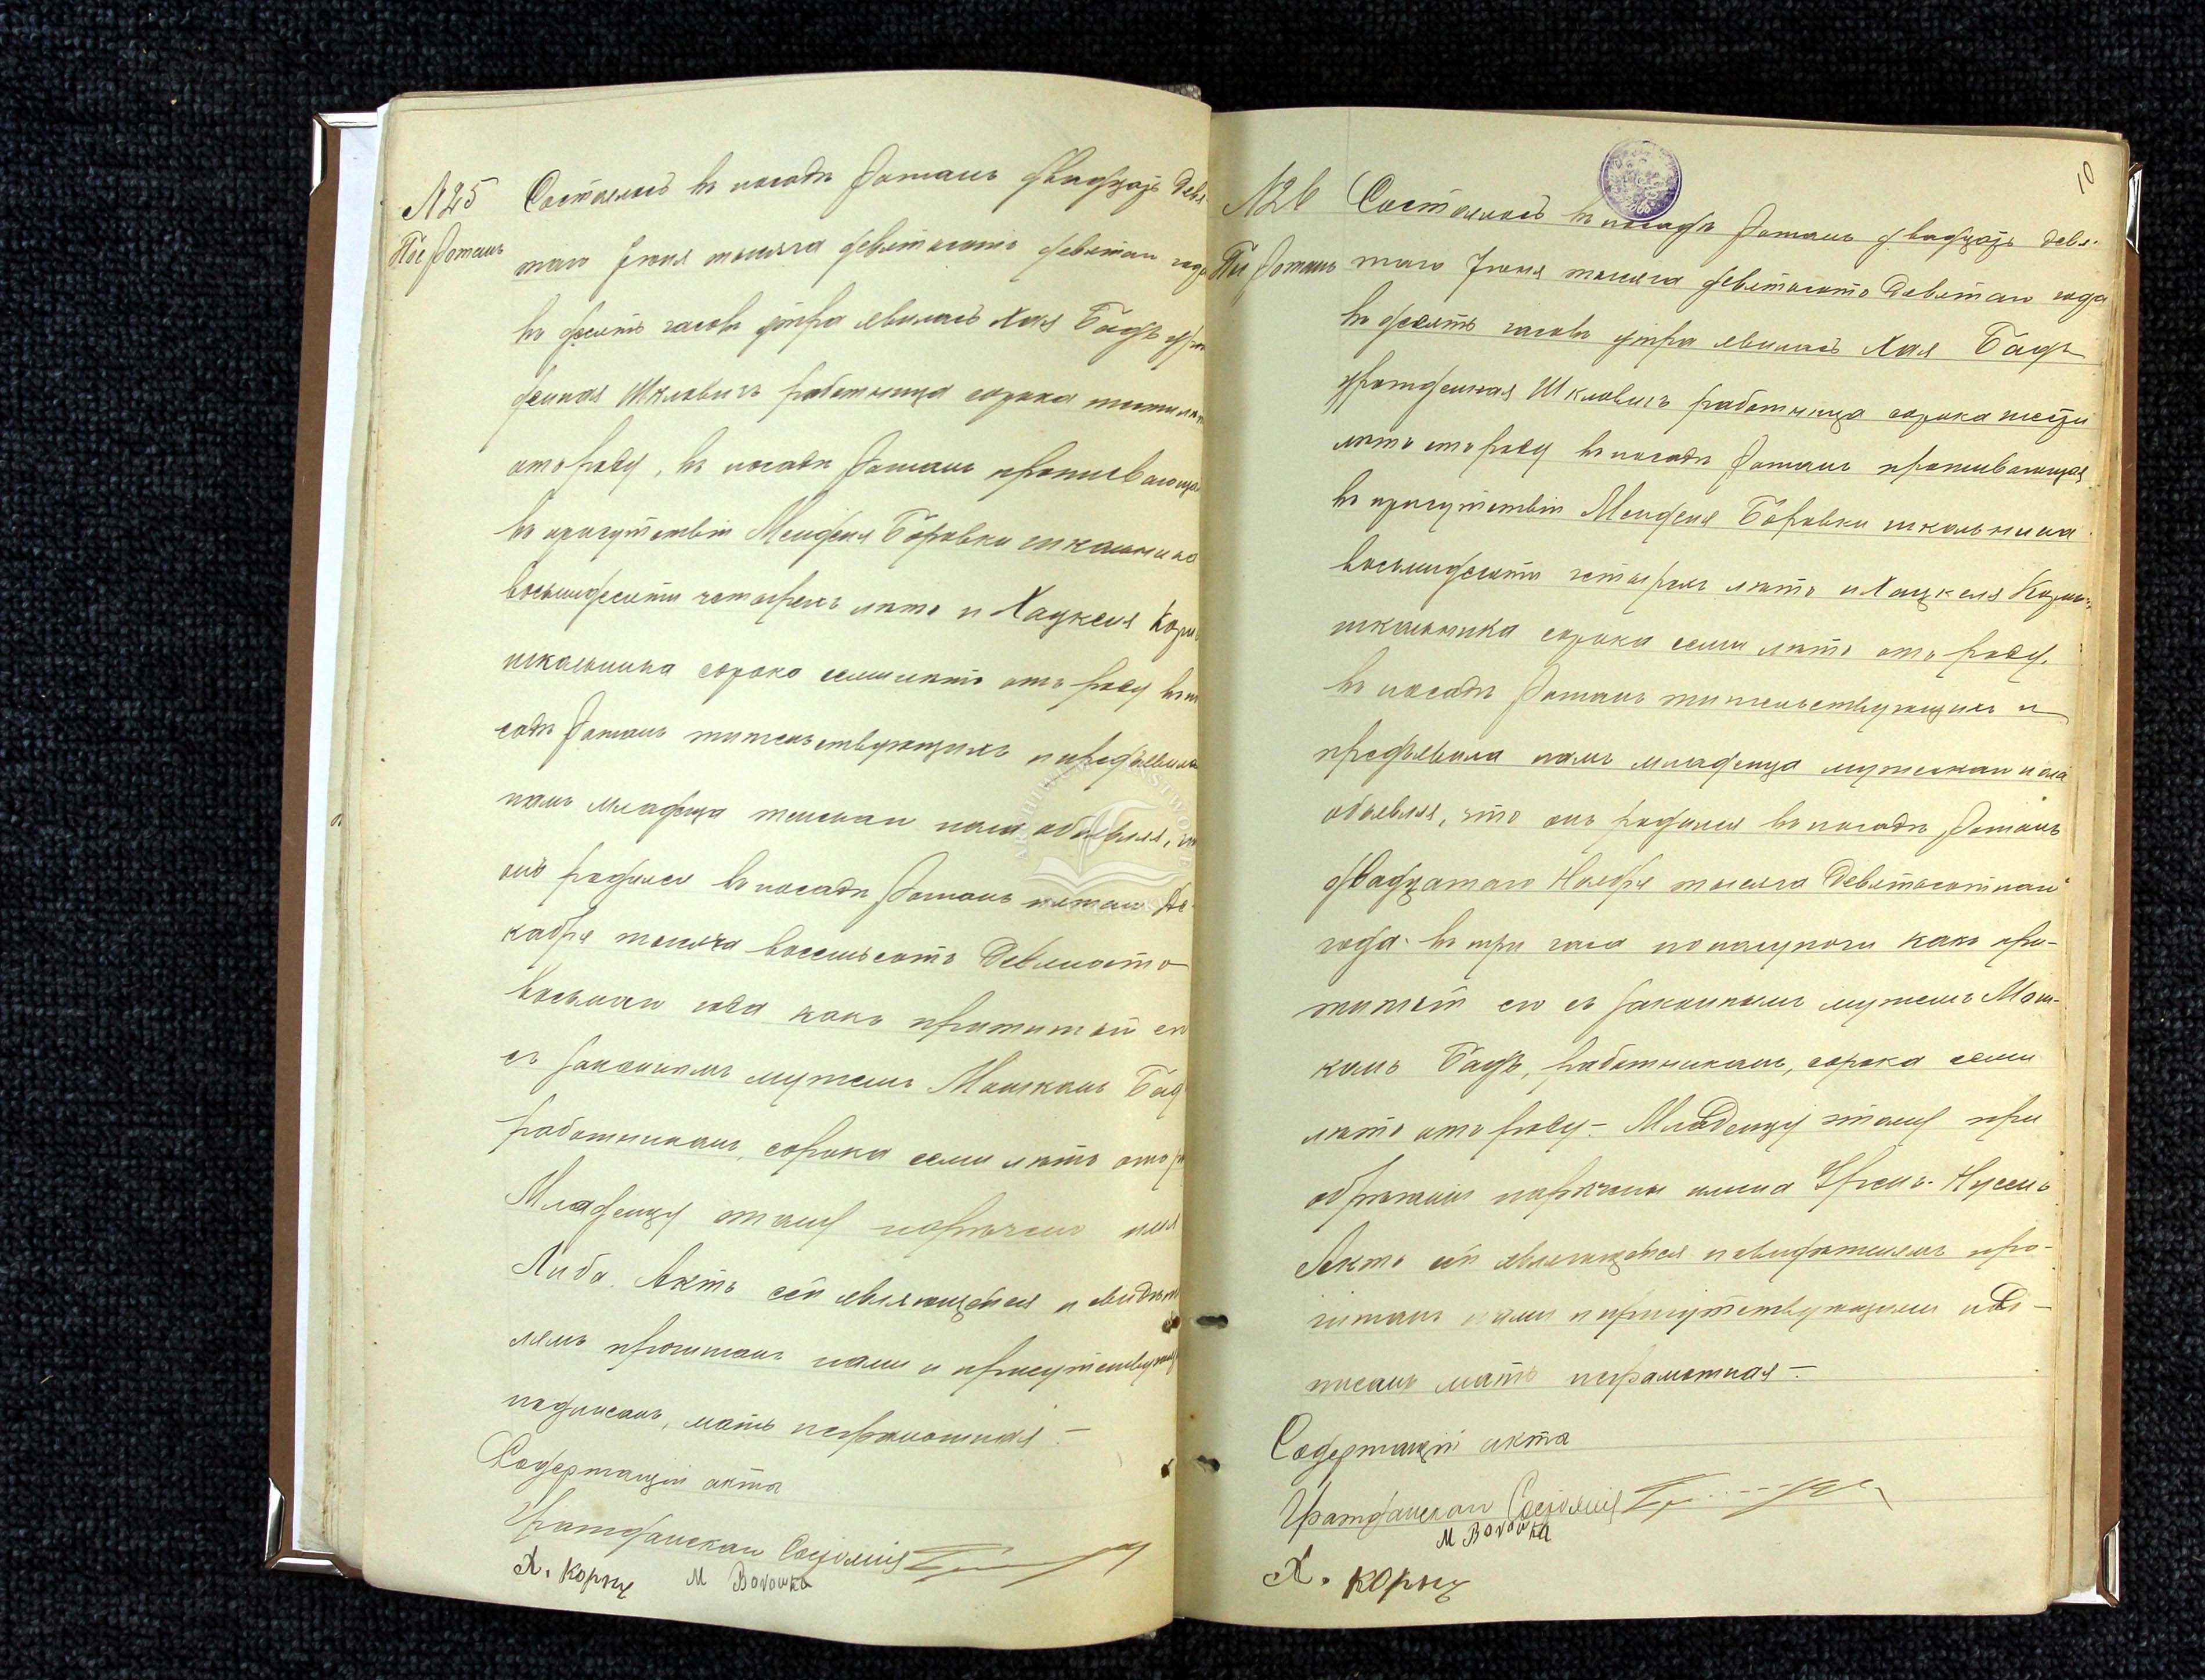 № 25 Состоялось въ посадѣ Ломахъ двадцать девя-
Пос Ломахъ
таго Іюня тысяча девятьсотъ девятаго года
въ десять часовъ утра явилась Хая Бадъ урож
денная Шкловичъ работница сорока шести лѣтъ
отъ роду, въ посадѣ проживающая
въ присутствіи Менделя Боровки школьника
восьмидесяти четырехъ лѣтъ и Хацкеля Корыц
школьника сорока семи лѣтъ отъ роду въ по
садѣ жительствующихъ и предъявила
намъ младенца женскаго пола объявляя, что
онъ родился въ посадѣ пятаго Де-
кабря тысяча восемьсотъ девяносто
восьмаго года какъ прижитый ею
съ законнымъ мужемъ Мошкомъ Бад
работникомъ, сорока семи лѣтъ отъ р
Младенцу этому наречено имя
Либа. Актъ сей являющейся и свидѣте
лямъ прочитанъ нами и присутствующ
подписанъ, мать неграмотная.-
Содержащій акты
Гражданскаго Состоянія
Х. Корыц М Воловка
10
№ 26 Состоялось въ посадѣ Ломахъ двадцать девя-
Пос Ломахъ
таго Іюня тысяча девятьсотъ девятаго года
въ десять часовъ утра явилась Хая Бадъ
урожденная Шкловичъ работница сорока шести
лѣтъ отъ роду въ посадѣ проживающая
въ присутствіи Менделя Боровки школьника
восьмидесяти четырехъ лѣтъ и Хацкеля Корыц
школьника сорока семи лѣтъ отъ роду,
въ посадѣ жительствующихъ и
предъявила намъ младенца мужескаго пола
объявляя, что онъ родился въ посадѣ
двадцатаго Ноября тысяча девятьсотнаго
года въ три часа пополуночи какъ при-
житый ею съ законнымъ мужемъ Мош-
комъ Бадъ, работникомъ, сорока семи
лѣтъ отъ роду.- Младенцу этому при
обрѣзаніи наречены имена Нусенъ
Актъ сей являющейся и свидѣтелямъ про-
читанъ нами и присутствующими под-
писанъ мать неграмотная.-
Содержащій акты
Гражданскаго Состоянія
М Воловка
Х. Корыц